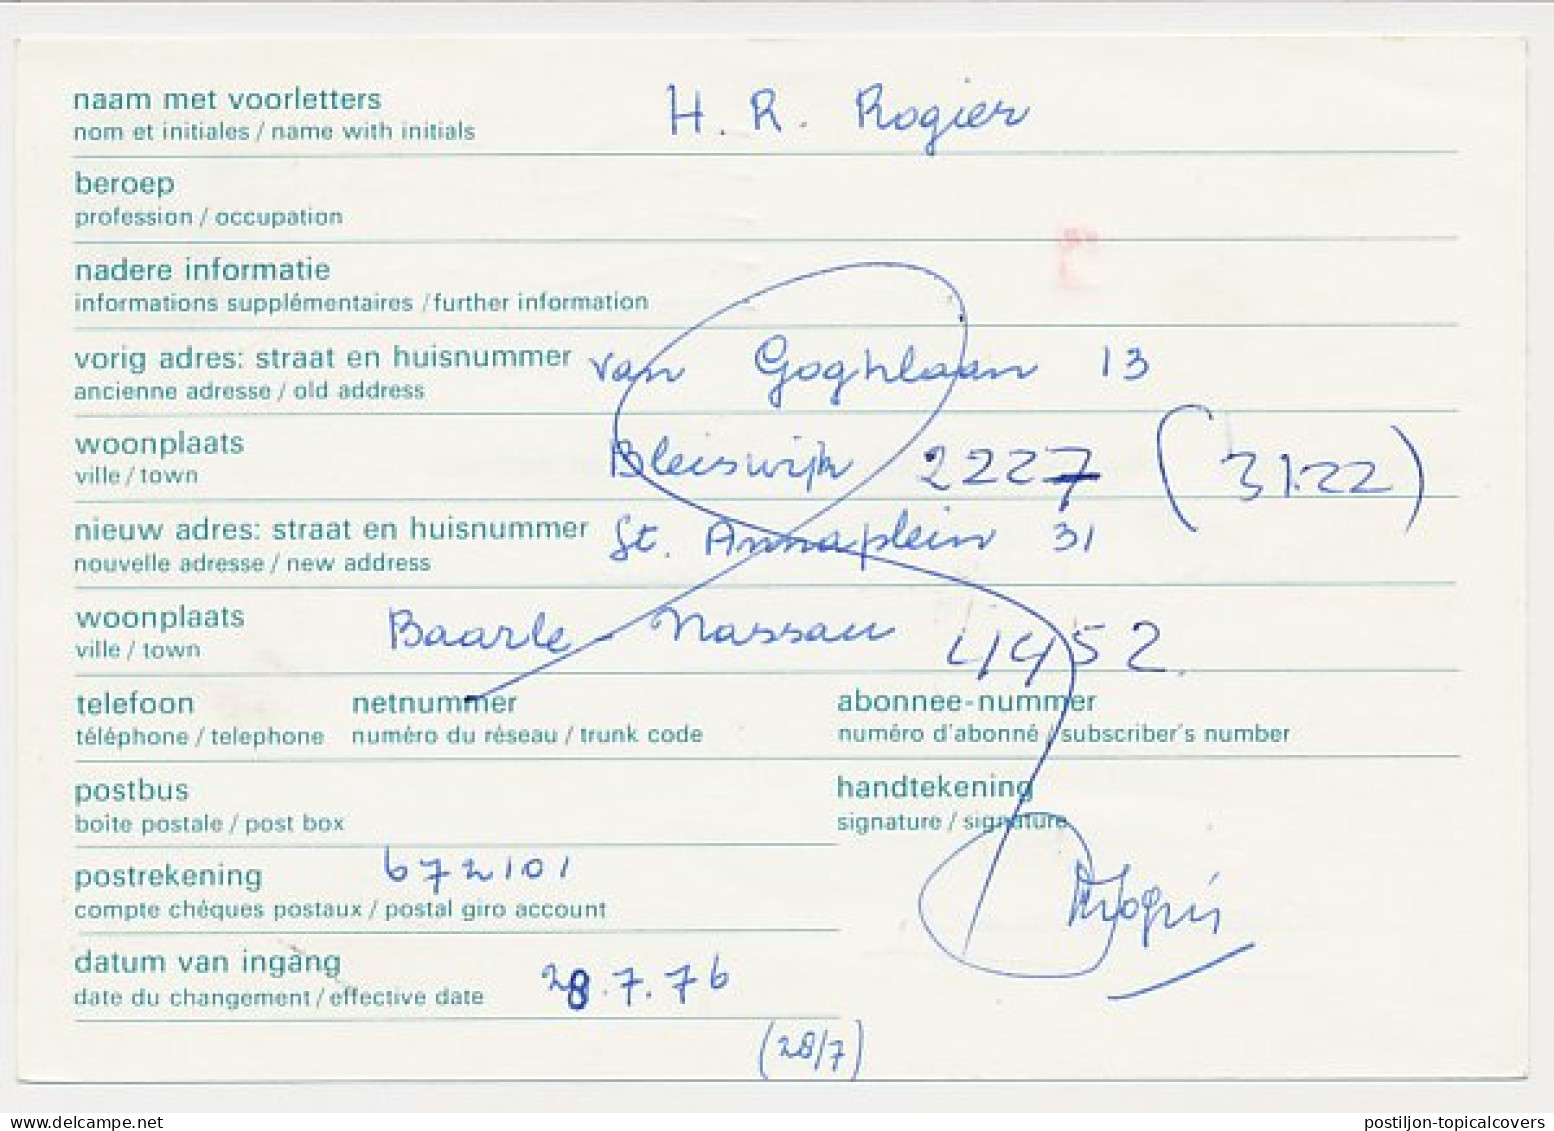 naam met voorletters H. R. Rogier
nom et initiales / name with initials
beroep
profession / occupation
nadere informatie
informations supplémentaires / further information
vorig adres: straat en huisnummer van Goghlaan 13
ancienne adresse / old address
woonplaats Bleiswijk 2227 (3122)
ville / town
nieuw adres: straat en huisnummer St. Annaplein 31
nouvelle adresse / new address
woonplaats Baarle-Nassau 4452
ville / town
telefoon netnummer abonnee-nummer
téléphone / telephone numéro du réseau / trunk code numéro d'abonné / subscriber's number
postbus handtekening
boîte postale / post box signature / signature
postrekening 672101
compte chéques postaux / postal giro account
datum van ingang 28.7.76
date du changement / effective date
(28/7)
www.delcampe.net postiljon-topicalcovers